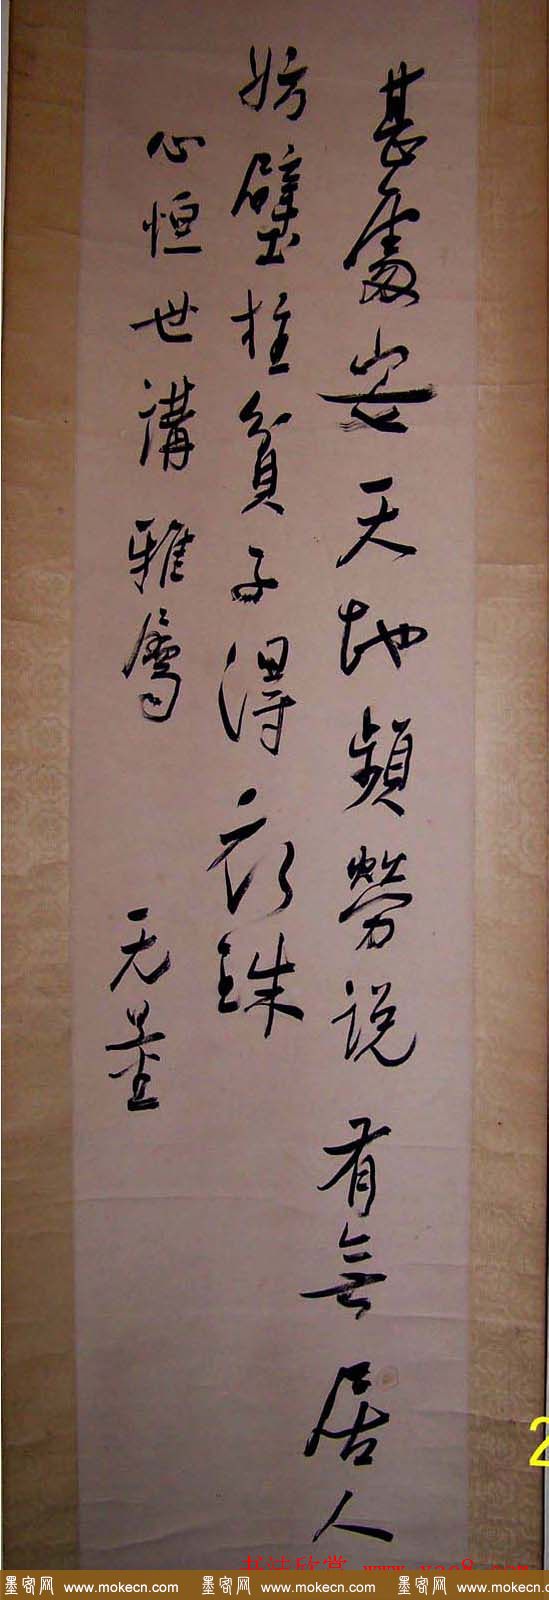 甚處安天地頻勞説有無居人
妨壁柱貧子得衣珠
心恒世講雅屬
无量
2
书法欣赏 www.yac8.com
墨客网 www.mokecn.com 墨客网 www.mokecn.com 墨客网 www.mokecn.com